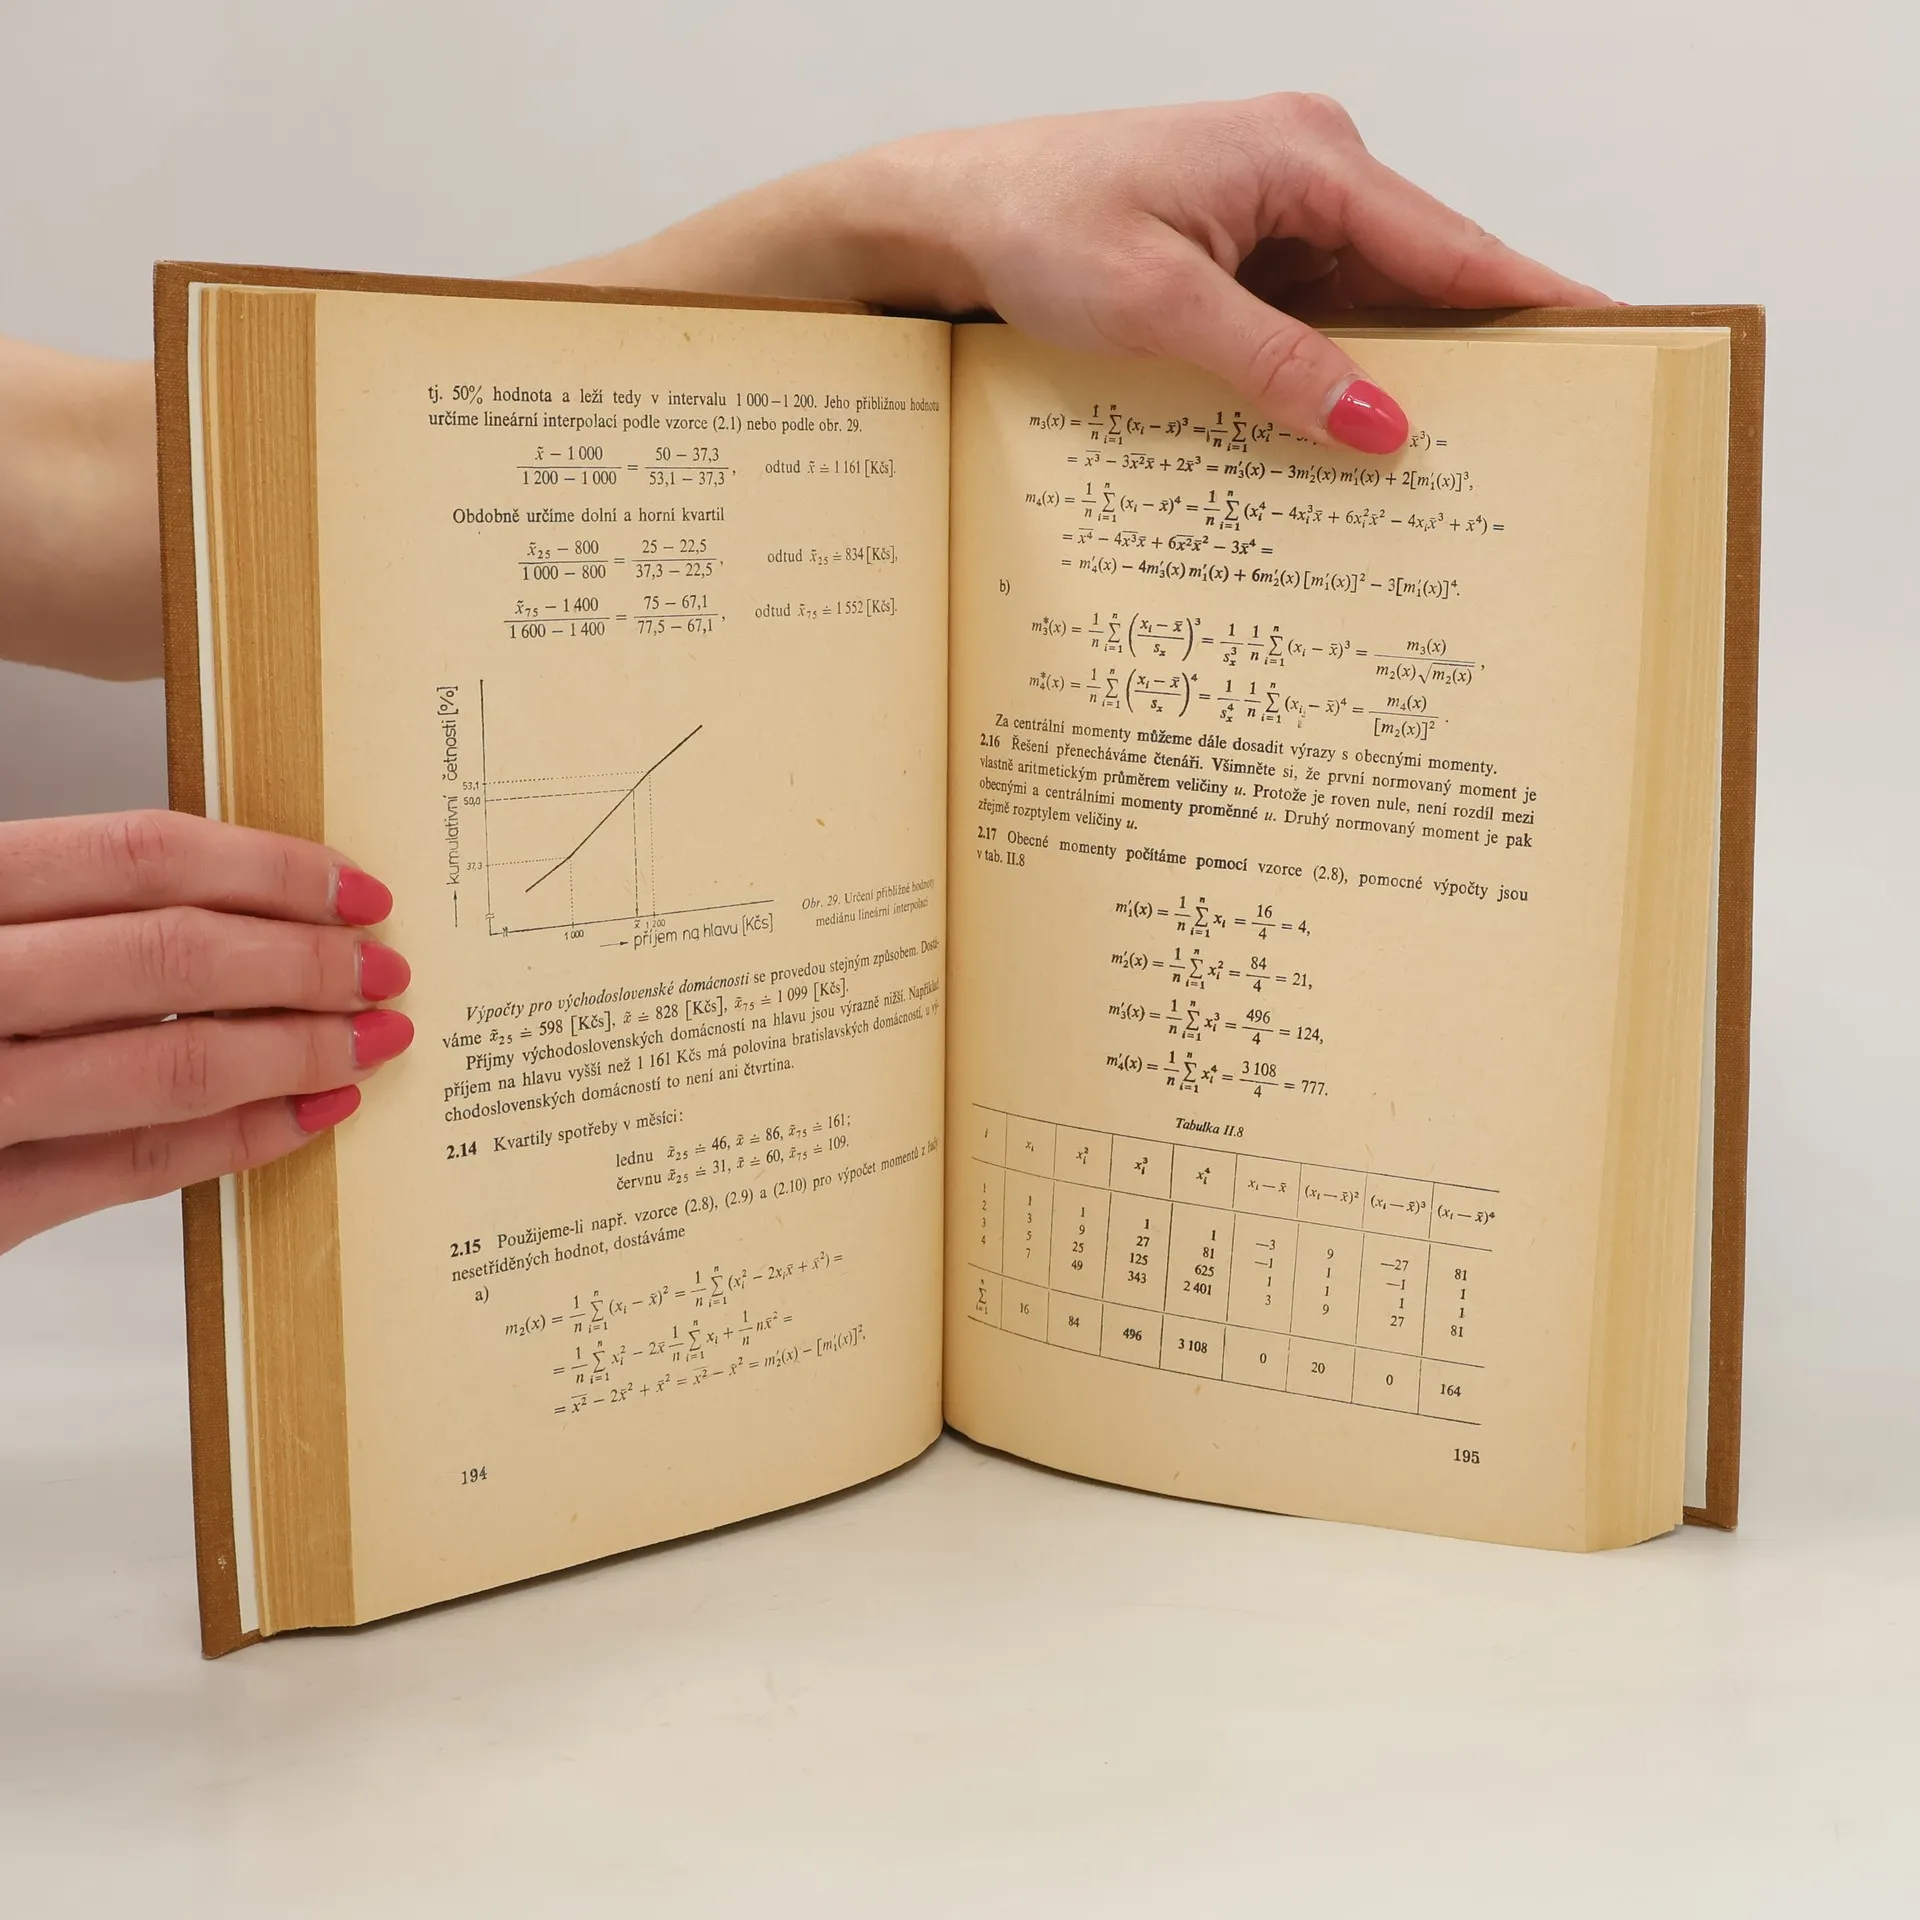 tj. 50% hodnota a leží tedy v intervalu 1 000–1 200. Jeho přibližnou hodnotu
určíme lineární interpolací podle vzorce (2.1) nebo podle obr. 29.
(x̃ − 1 000)/(1 200 − 1 000) = (50 − 37,3)/(53,1 − 37,3), odtud x̃ ≐ 1 161 [Kčs].
Obdobně určíme dolní a horní kvartil
(x̃₂₅ − 800)/(1 000 − 800) = (25 − 22,5)/(37,3 − 22,5), odtud x̃₂₅ ≐ 834 [Kčs],
(x̃₇₅ − 1 400)/(1 600 − 1 400) = (75 − 67,1)/(77,5 − 67,1), odtud x̃₇₅ ≐ 1 552 [Kčs].
→ kumulativní četnosti [%]
53,1
50,0
37,3
1 000 x̃ 1 200
→ příjem na hlavu [Kčs]
Obr. 29. Určení přibližné hodnoty
mediánu lineární interpolací
Výpočty pro východoslovenské domácnosti se provedou stejným způsobem. Dostá-
váme x̃₂₅ ≐ 598 [Kčs], x̃ ≐ 828 [Kčs], x̃₇₅ ≐ 1 099 [Kčs].
Příjmy východoslovenských domácností na hlavu jsou výrazně nižší. Například
příjem na hlavu vyšší než 1 161 Kčs má polovina bratislavských domácností, u vý-
chodoslovenských domácností to není ani čtvrtina.
2.14 Kvartily spotřeby v měsíci:
lednu x̃₂₅ ≐ 46, x̃ ≐ 86, x̃₇₅ ≐ 161;
červnu x̃₂₅ ≐ 31, x̃ ≐ 60, x̃₇₅ ≐ 109.
2.15 Použijeme-li např. vzorce (2.8), (2.9) a (2.10) pro výpočet momentů z řady
nesetříděných hodnot, dostáváme
a)
m₂(x) = 1/n Σⁿᵢ₌₁ (xᵢ − x̄)² = 1/n Σⁿᵢ₌₁ (xᵢ² − 2xᵢx̄ + x̄²) =
= 1/n Σⁿᵢ₌₁ xᵢ² − 2x̄ 1/n Σⁿᵢ₌₁ xᵢ + 1/n nx̄² =
= x̅²̅ − 2x̄² + x̄² = x̅²̅ − x̄² = m′₂(x) − [m′₁(x)]²,
194
m₃(x) = 1/n Σⁿᵢ₌₁ (xᵢ − x̄)³ = 1/n Σⁿᵢ₌₁ (xᵢ³ − x̄³) =
= x̅³̅ − 3x̅²̅x̄ + 2x̄³ = m′₃(x) − 3m′₂(x) m′₁(x) + 2[m′₁(x)]³,
m₄(x) = 1/n Σⁿᵢ₌₁ (xᵢ − x̄)⁴ = 1/n Σⁿᵢ₌₁ (xᵢ⁴ − 4xᵢ³x̄ + 6xᵢ²x̄² − 4xᵢx̄³ + x̄⁴) =
= x̅⁴̅ − 4x̅³̅x̄ + 6x̅²̅x̄² − 3x̄⁴ =
= m′₄(x) − 4m′₃(x) m′₁(x) + 6m′₂(x) [m′₁(x)]² − 3[m′₁(x)]⁴.
b)
m₃*(x) = 1/n Σⁿᵢ₌₁ ((xᵢ − x̄)/sₓ)³ = 1/sₓ³ 1/n Σⁿᵢ₌₁ (xᵢ − x̄)³ = m₃(x)/(m₂(x) √m₂(x)),
m₄*(x) = 1/n Σⁿᵢ₌₁ ((xᵢ − x̄)/sₓ)⁴ = 1/sₓ⁴ 1/n Σⁿᵢ₌₁ (xᵢ − x̄)⁴ = m₄(x)/[m₂(x)]².
Za centrální momenty můžeme dále dosadit výrazy s obecnými momenty.
2.16 Řešení přenecháváme čtenáři. Všimněte si, že první normovaný moment je
vlastně aritmetickým průměrem veličiny u. Protože je roven nule, není rozdíl mezi
obecnými a centrálními momenty proměnné u. Druhý normovaný moment je pak
zřejmě rozptylem veličiny u.
2.17 Obecné momenty počítáme pomocí vzorce (2.8), pomocné výpočty jsou
v tab. II.8
m′₁(x) = 1/n Σⁿᵢ₌₁ xᵢ = 16/4 = 4,
m′₂(x) = 1/n Σⁿᵢ₌₁ xᵢ² = 84/4 = 21,
m′₃(x) = 1/n Σⁿᵢ₌₁ xᵢ³ = 496/4 = 124,
m′₄(x) = 1/n Σⁿᵢ₌₁ xᵢ⁴ = 3 108/4 = 777.
Tabulka II.8
i xᵢ xᵢ² xᵢ³ xᵢ⁴ xᵢ − x̄ (xᵢ − x̄)² (xᵢ − x̄)³ (xᵢ − x̄)⁴
1 1 1 1 1 −3 9 −27 81
2 3 9 27 81 −1 1 −1 1
3 5 25 125 625 1 1 1 1
4 7 49 343 2 401 3 9 27 81
Σⁿᵢ₌₁ 16 84 496 3 108 0 20 0 164
195